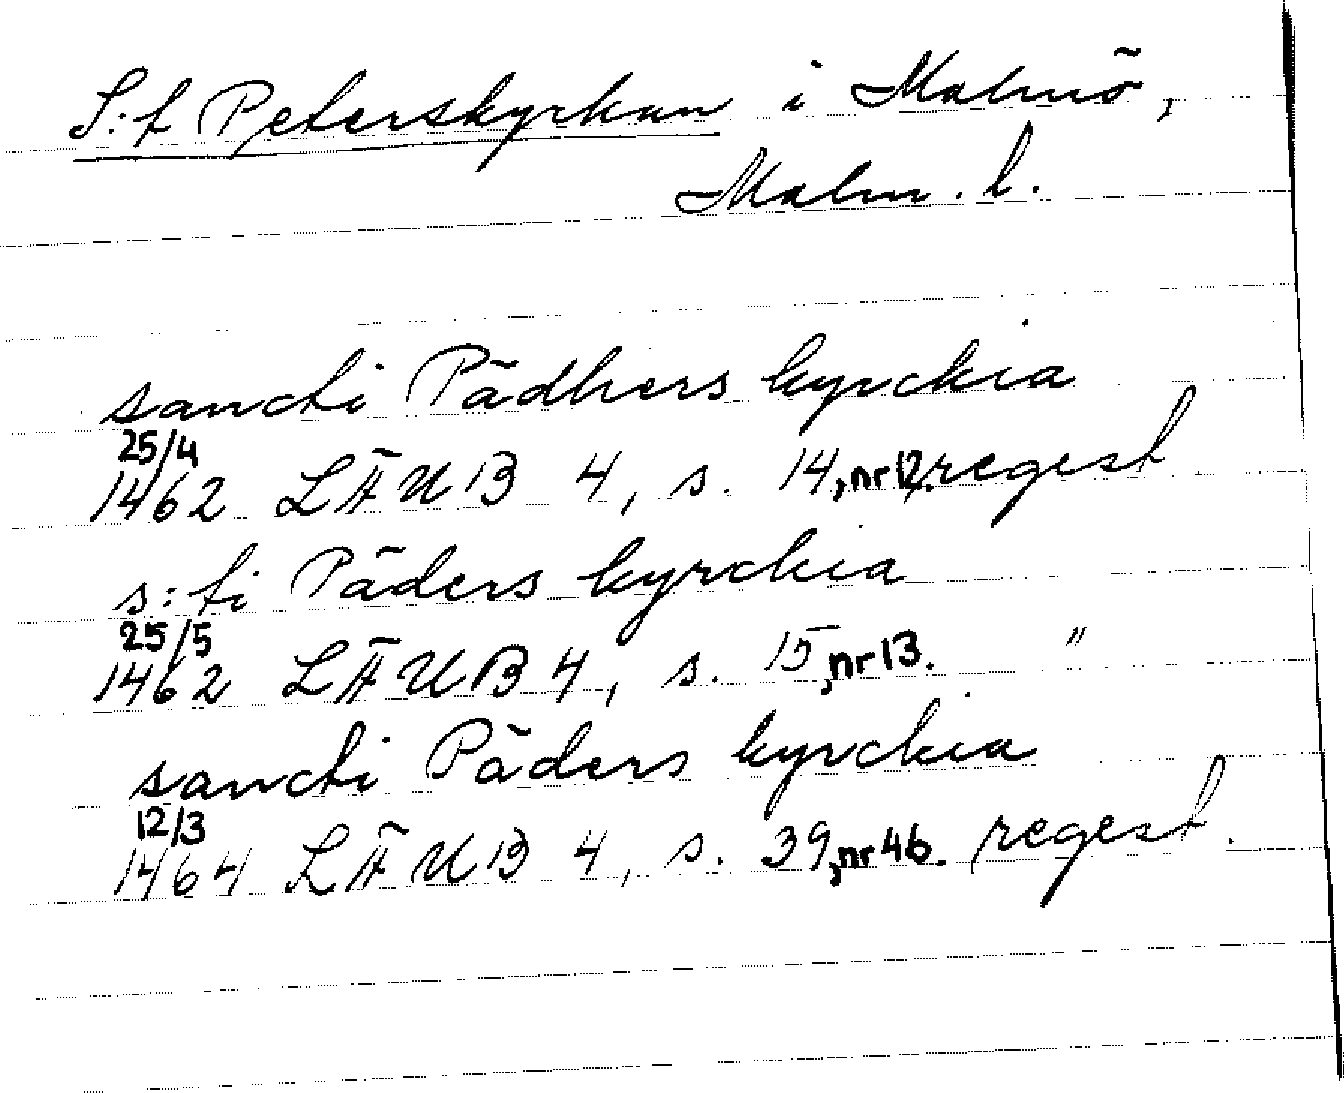 S:t Peterskyrkan i Malmö,
Malm. l.
sancti Pädhers kyrckia
25/4
1462 LÄUB 4, s. 14, nr 12, regest
s:ti Päders kyrckia
25/5
1462 LÄUB 4, s. 15, nr 13. "
sancti Päders kyrckia
12/3
1464 LÄUB 4, s. 39, nr 46. regest.